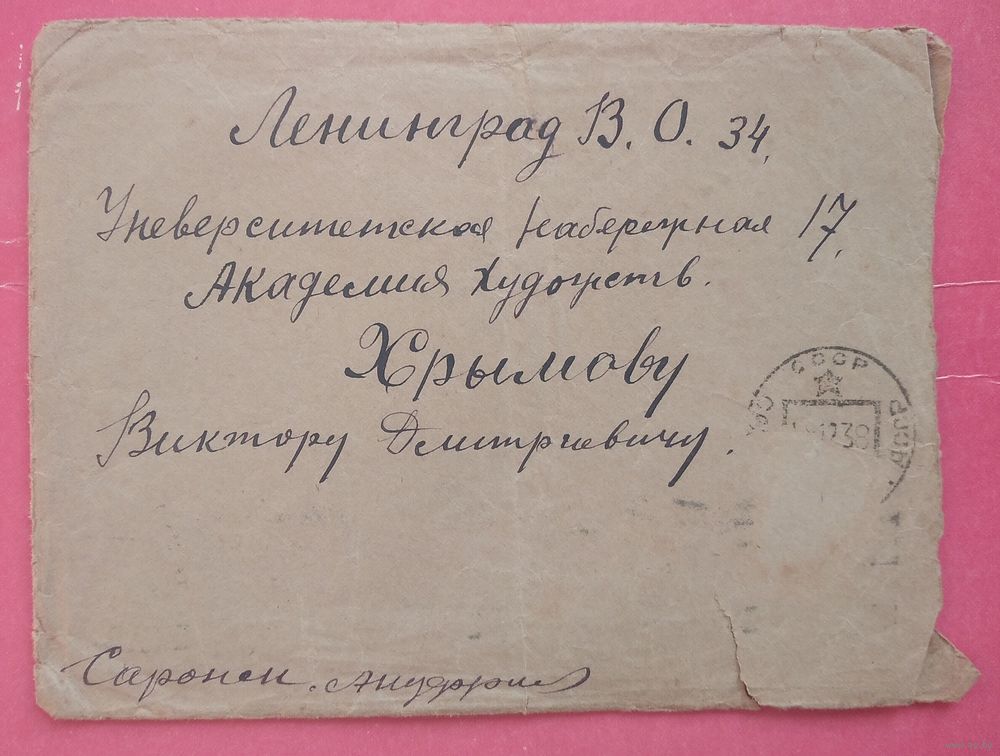 Ленинград В. О. 34.
Уневерситетская набережная 17.
Академия художеств.
Хрымову
Виктору Дмитриевичу.
СССР
12 38
Саронск.